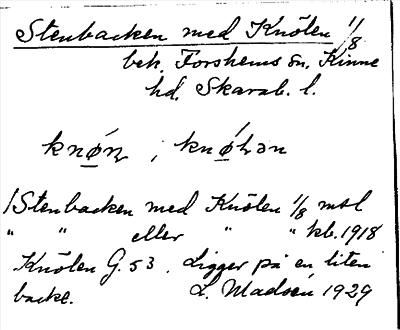 Stenbacken med Knölen 1/8
bek. Forshems sn, Kinne
hd, Skarab. l.
knǿn, knǿlən
1 Stenbacken med Knölen 1/8 mtl
" " eller " " kb. 1918
Knölen G. 53. Ligger på en liten
backe. L. Madsén 1929